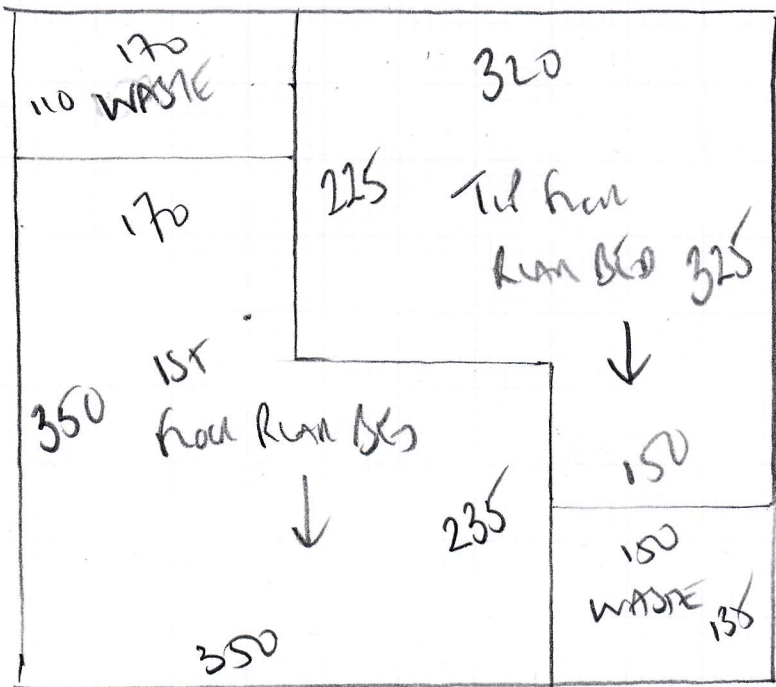 170
110 WASTE
320
170
225
REAR BED 325
1ST
350 FLOOR REAR BED
235
150
350
150
WASTE 135